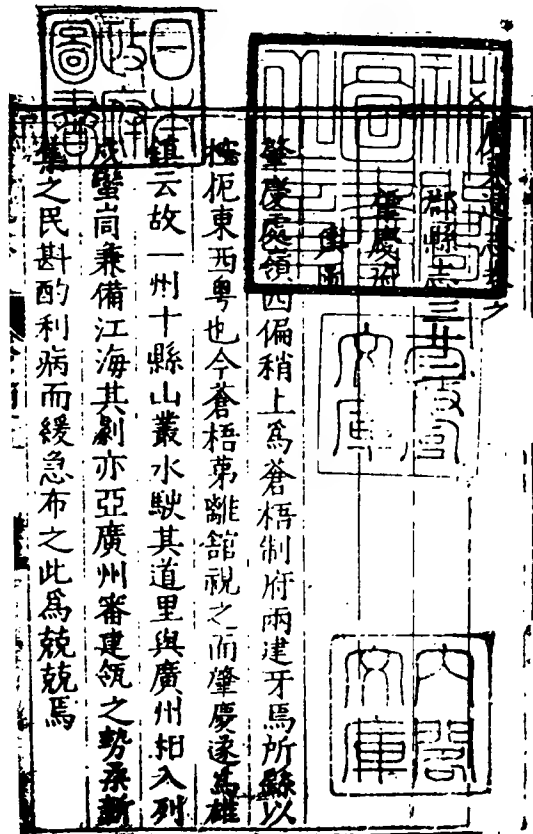 廣東通志卷之
郡縣志三
肇慶府
輿圖
肇慶處嶺西偏稍上爲蒼梧制府兩建牙焉所繇以
控扼東西粤也今蒼梧第離舘視之而肇慶遂爲雄
鎮云故一州十縣山叢水駛其道里與廣州相入列
戍蠻峝兼備江海其劇亦亞廣州審建瓴之勢柔新
集之民斟酌利病而緩急布之此爲兢兢焉
日本
政府
圖書
內閣
文庫
文庫